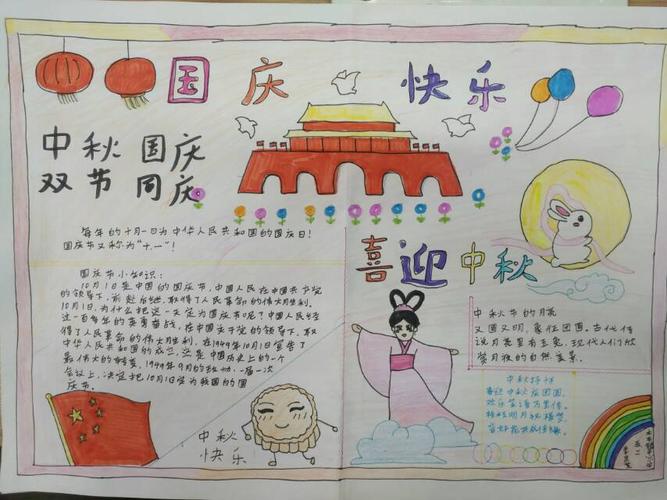 国庆 快乐
中秋国庆
双节同庆
每年的十月一日为中华人民共和国的国庆日!
国庆节又称为“十一”!
国庆节小知识:
10月1日是中国的国庆节,中国人民在中国共产党
的领导下,前赴后继,取得了人民革命的伟大胜利。
10月1日,为什么把这一天定为国庆节呢?中国人民经
过一百多年的英勇奋战,在中国共产党的领导下,取
得了人民革命的伟大胜利,在1949年10月1日宣告了
中华人民共和国的成立,这是中国历史上的一个
最伟大的转变。1949年9月的
会议上,决定把10月1日定为我国的国
庆节。
中秋
快乐
喜迎中秋
中秋节的月亮
又圆又明,象征团圆。古代传
说月亮里有玉兔,现代人们欣
赏月夜的自然美景。
中秋
喜迎中秋庆团圆
欢乐
五二